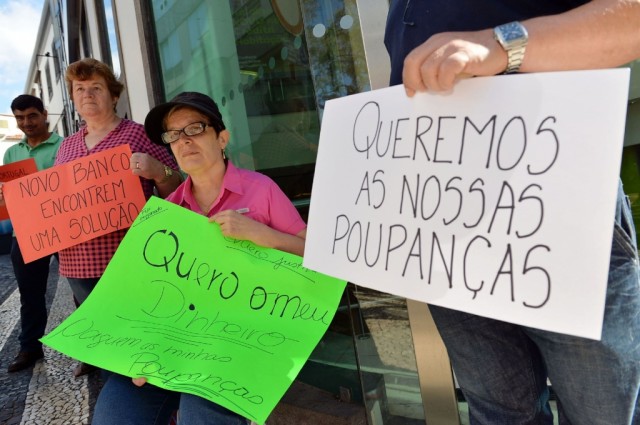 PORTUGAL
NOVO BANCO
ENCONTREM
UMA SOLUÇÃO
Quero o meu
Dinheiro
minhas
Poupanças
QUEREMOS
AS NOSSAS
POUPANÇAS